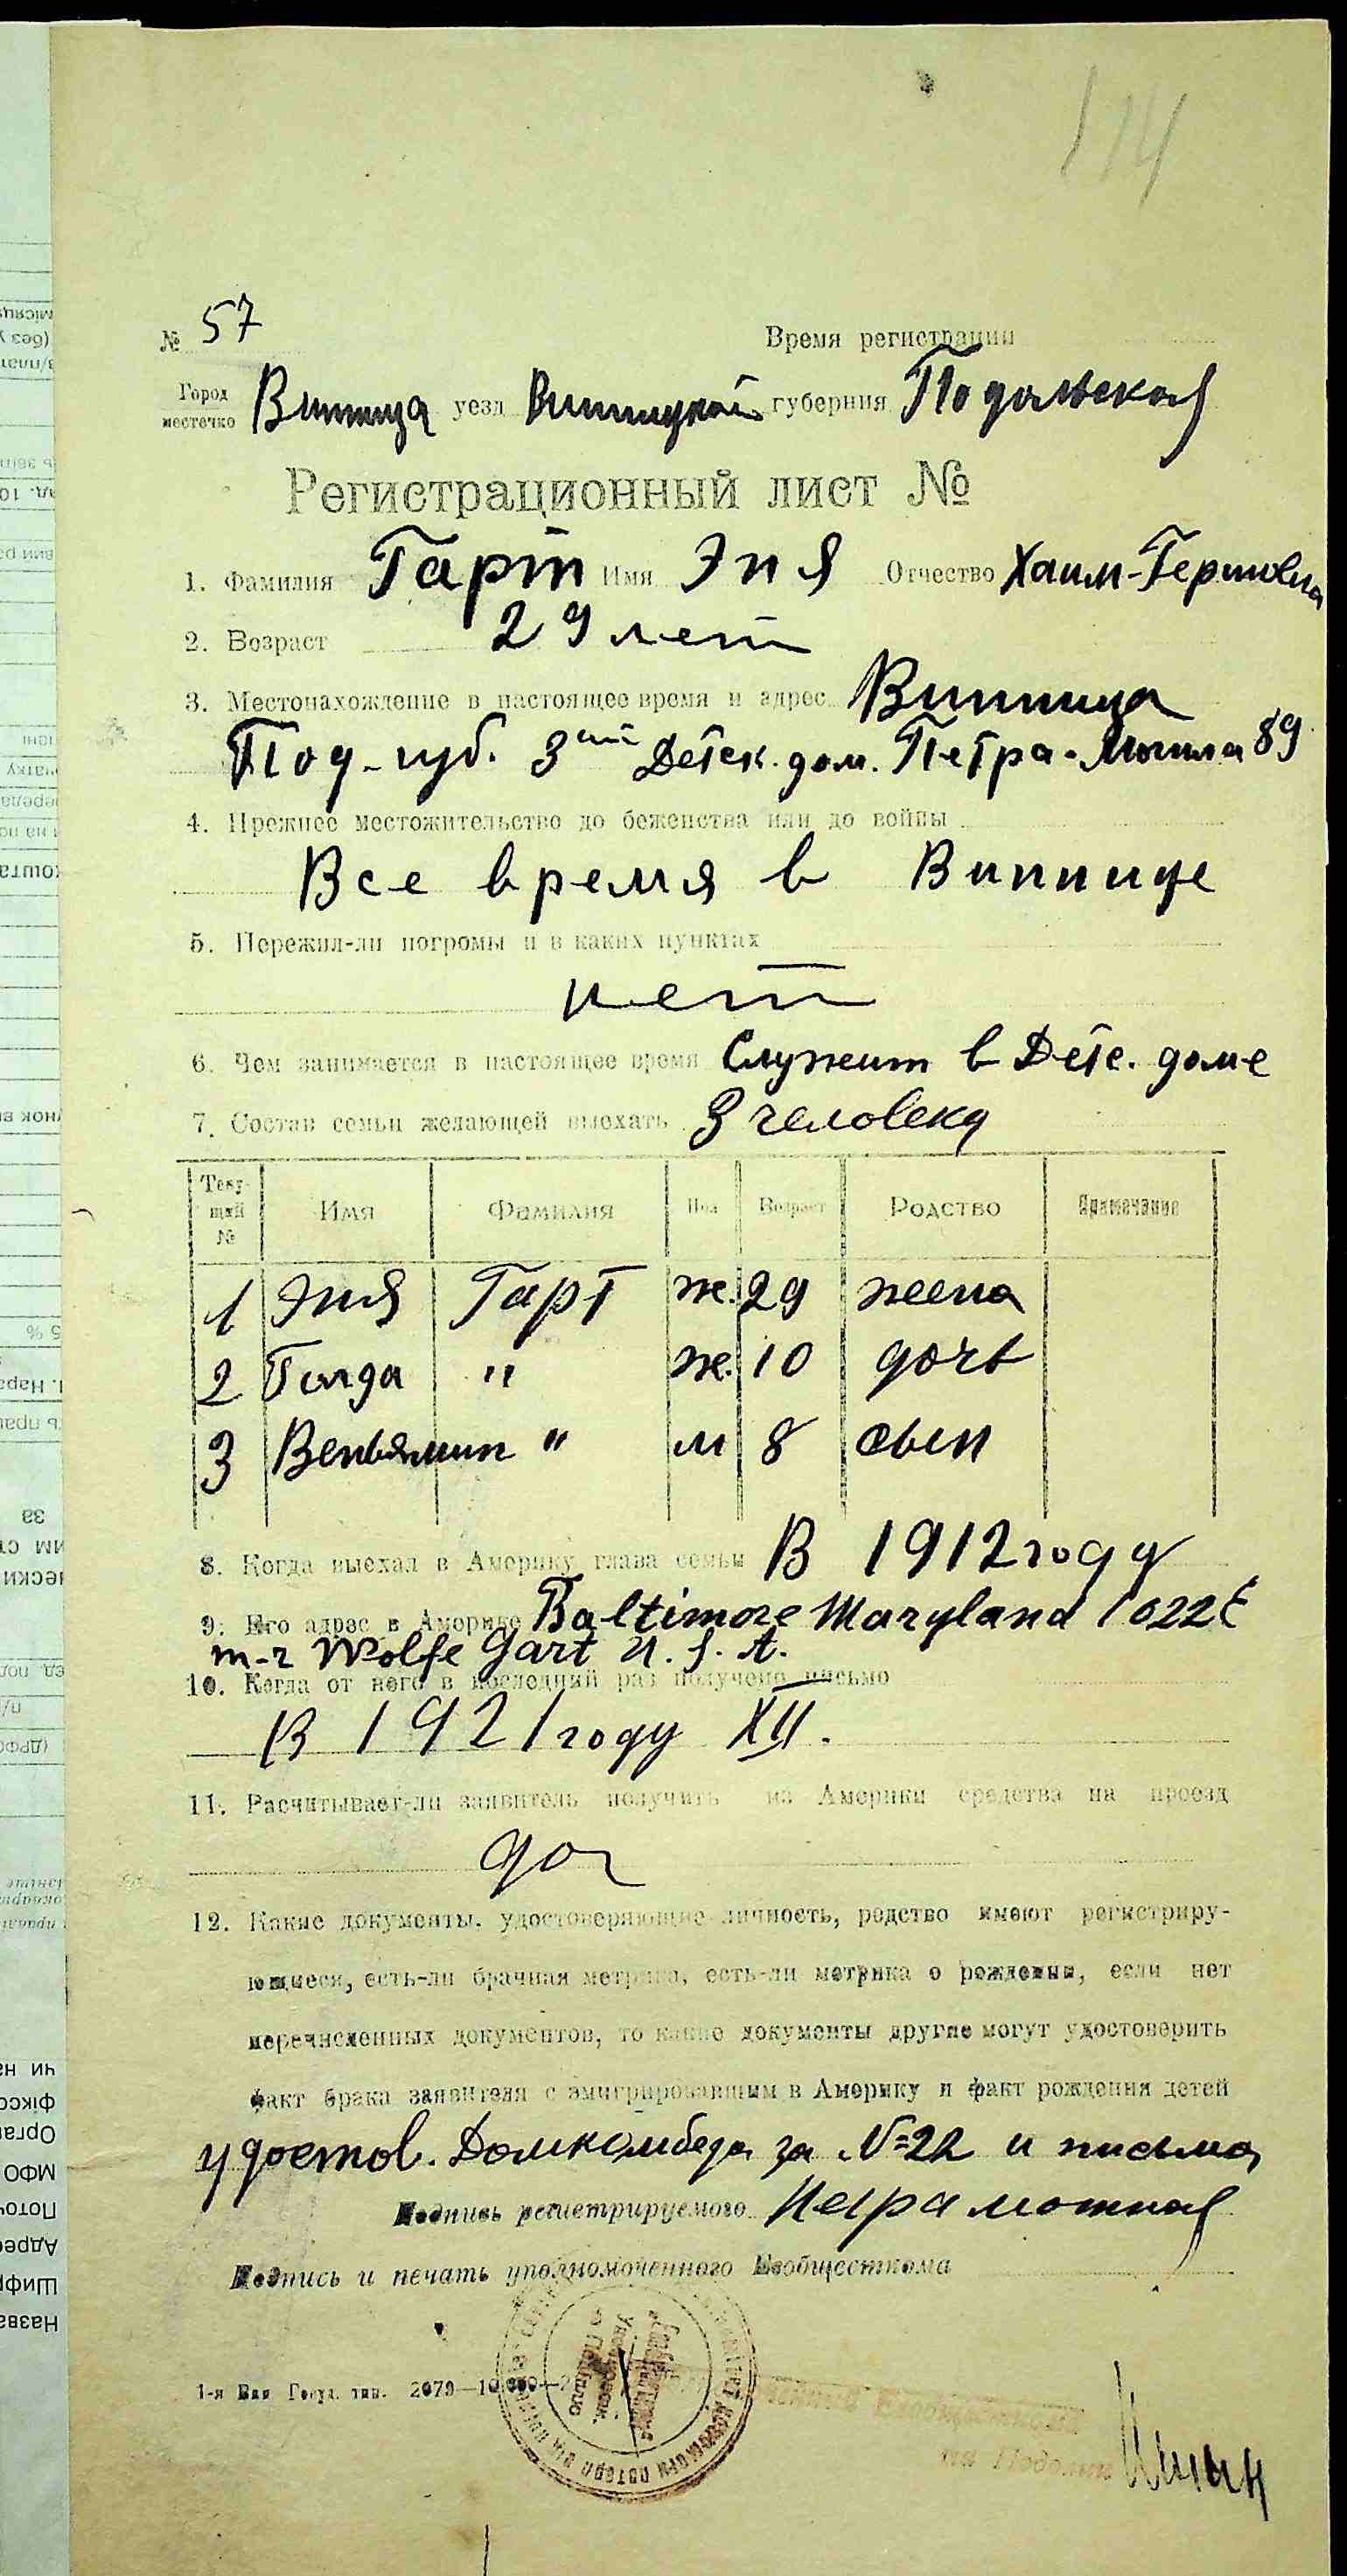 114
№ 57 Время регистрации
Город местечко Винница уезд Винницкой губерния Подольская
Регистрационный лист №
1. Фамилия Гарт Имя Эня Отчество Хаим-Гершовна
2. Возраст 29 лет
3. Местонахождение в настоящее время и адрес Винница
Под-губ. 3ий Детск. дом. Петра-Могила 89
4. Прежнее местожительство до беженства или до войны
Все время в Виннице
5. Пережил-ли погромы и в каких пунктах
нет
6. Чем занимается в настоящее время Служит в Детс. доме
7. Состав семьи желающей выехать 3 человека
Теку-щий № Имя Фамилия Пол Возраст Родство Примечание
1 Эня Гарт ж. 29 жена
2 Голда " ж. 10 дочь
3 Веньямин " м 8 сын
8. Когда выехал в Америку глава семьи В 1912 году
9. Его адрес в Америке Baltimore Maryland 1022 E
m-r Wolfe Gart U. S. A.
10. Когда от него в последний раз получено письмо
В 1921 году XII.
11. Расчитывает-ли заявитель получить из Америки средства на проезд
да
12. Какие документы. удостоверяющие личность, родство имеют регистриру-
ющиеся, есть-ли брачная метрика, есть-ли метрика о рождении, если нет
перечисленных документов, то какие документы другие могут удостоверить
факт брака заявителя с эмигрировавшим в Америку и факт рождения детей
удостов. Домкомбеда за №=22 и письма
Подпись регистрируемого Неграмотная
Подпись и печать уполномоченного Евобщесткома
1-я Вин Госуд. тип. 2079—10.000—
на Подолии